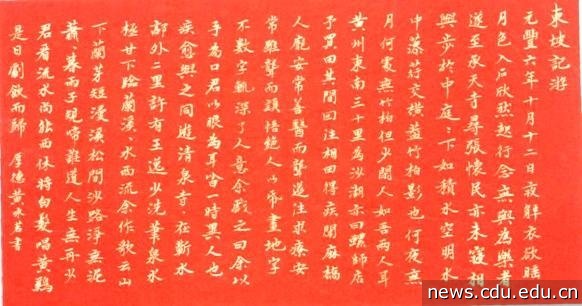 東坡記游
元豐六年十月十二日夜解衣欲睡
月色入户欣然起行念無與為樂者
遂至承天寺尋張懷民亦未寢相
與步於中庭庭下如積水空明水
中藻荇交橫蓋竹柏影也何夜無
月何處無竹柏但少閒人如吾兩人耳
黄州東南三十里為沙湖亦曰螺師店
予買田其間因往相田得疾聞麻橋
人龐安常善醫而聾遂往求療安
常雖聾而穎悟絕人以紙畫地字
不數字輒深了人意余戲之曰余以
手為口君以眼為耳皆一時異人也
疾愈與之同遊清泉寺寺在蘄水
郭外二里許有王逸少洗筆泉水
極甘下臨蘭溪溪水西流余作歌云山
下蘭芽短浸溪松間沙路淨無泥
蕭蕭暮雨子規啼誰道人生無再少
君看流水尚能西休將白髮唱黄鷄
是日劇飲而歸 厚德黄永若書
news.cdu.edu.cn